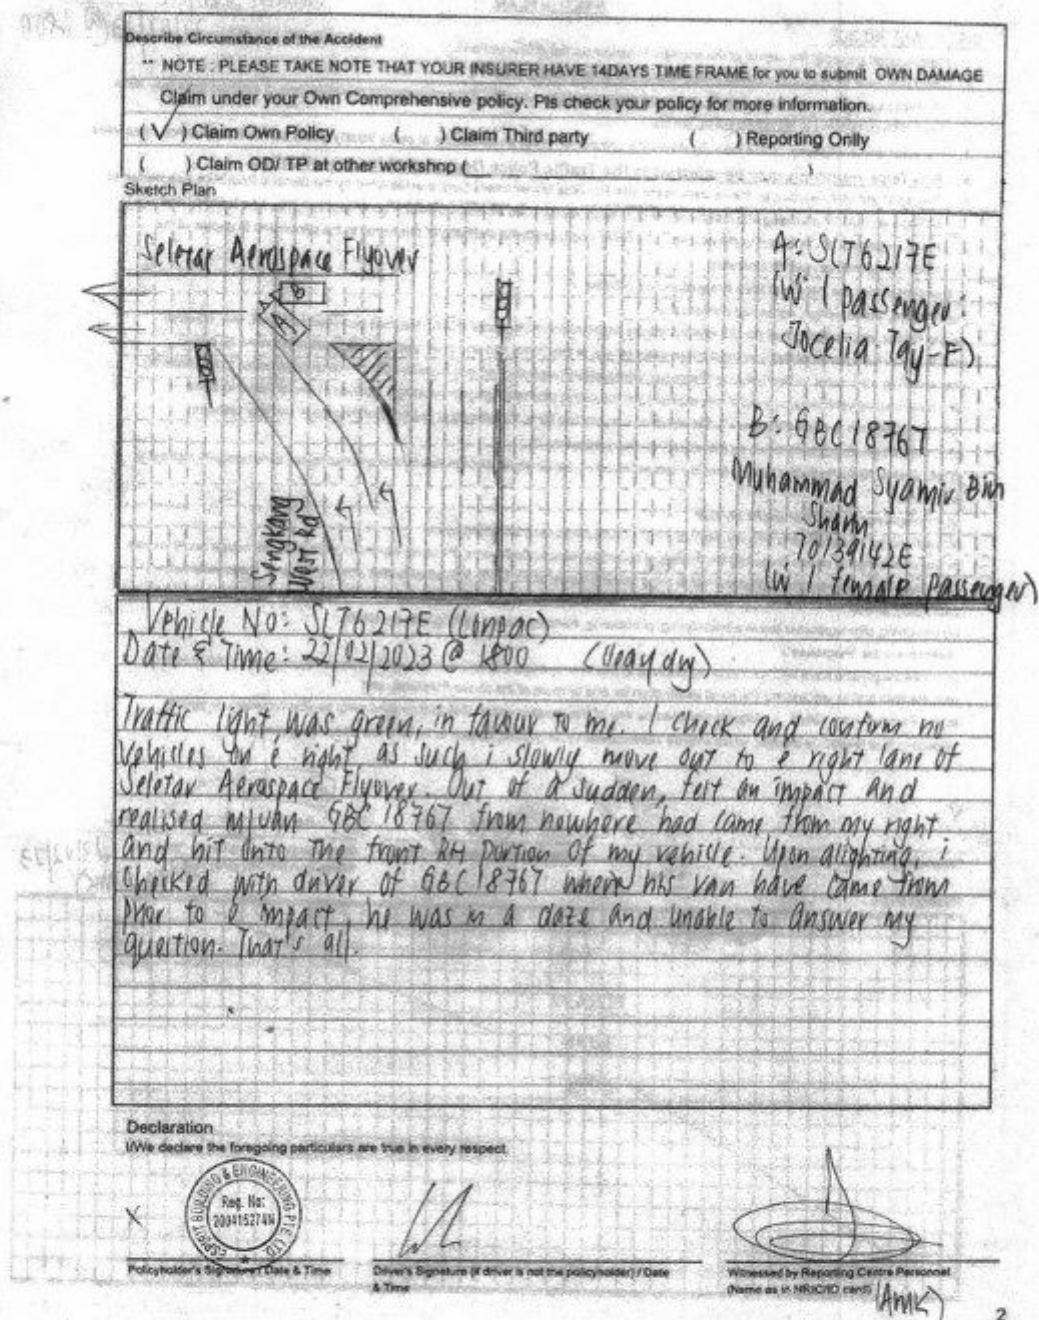 Describe Circumstance of the Accident
** NOTE : PLEASE TAKE NOTE THAT YOUR INSURER HAVE 14DAYS TIME FRAME for you to submit OWN DAMAGE
Claim under your Own Comprehensive policy. Pls check your policy for more information.
( ✓ ) Claim Own Policy ( ) Claim Third party ( ) Reporting Onlly
( ) Claim OD/ TP at other workshop ( )
Sketch Plan
Seletar Aerospace Flyover
B
A
Sengkang
West Rd
A: SLT6217E
(w 1 passenger:
Jocelia Tay-F)
B: GBC1876T
Muhammad Syamir Bin
T0139142E
(w 1 female passenger)
Vehicle No: SLT6217E (Lonpac)
Date & Time: 22/02/2023 @ 1800
Traffic light was green, in favour to me. I check and confirm no
vehicles on e right as such i slowly move out to e right lane of
Seletar Aerospace Flyover. Out of a sudden, felt an impact and
realised m/van GBC1876T from nowhere had came from my right
and hit onto the front RH portion of my vehicle. Upon alighting, i
checked with driver of GBC1876T where his van have came from
prior to e impact, he was in a daze and unable to answer my
question. That's all.
Declaration
I/We declare the foregoing particulars are true in every respect.
ESPRIT BUILDING & ENGINEERING PTE. LTD.
Reg. No:
200415274N
X
Policyholder's Signature / Date & Time
Driver's Signature (if driver is not the policyholder) / Date
& Time
Witnessed by Reporting Centre Personnel
(Name as in NRIC/ID card) (AMK)
2